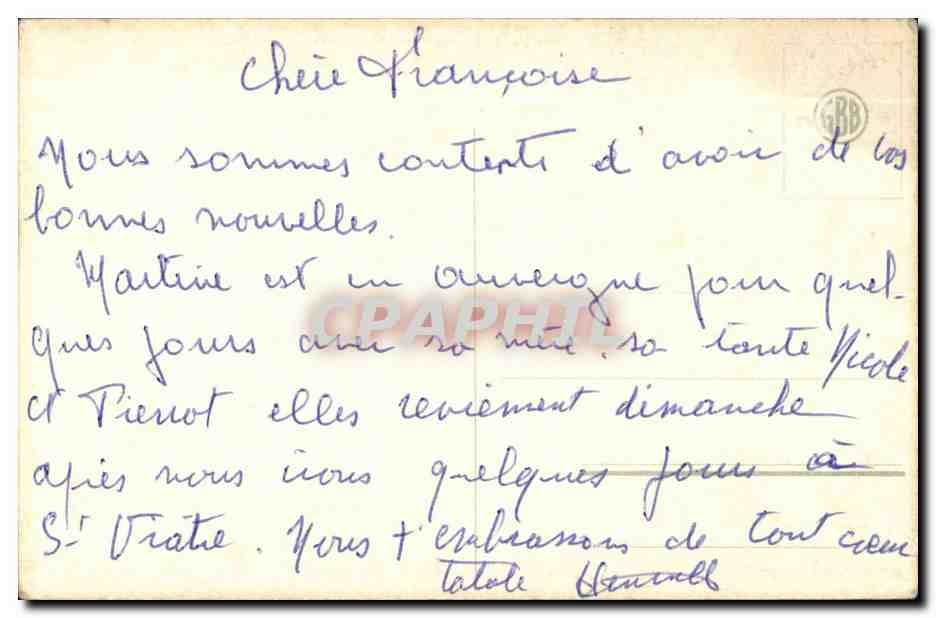 Chère Françoise
GBB
Nous sommes contents d'avoir de vos
bonnes nouvelles.
Martine est en auvergne pour quel-
ques jours avec sa mère. sa tante Nicole
et Pierrot elles reviennent dimanche
après nous irons quelques jours à
St Viatre. Nous t'embrassons de tout coeur
CPAPHIL